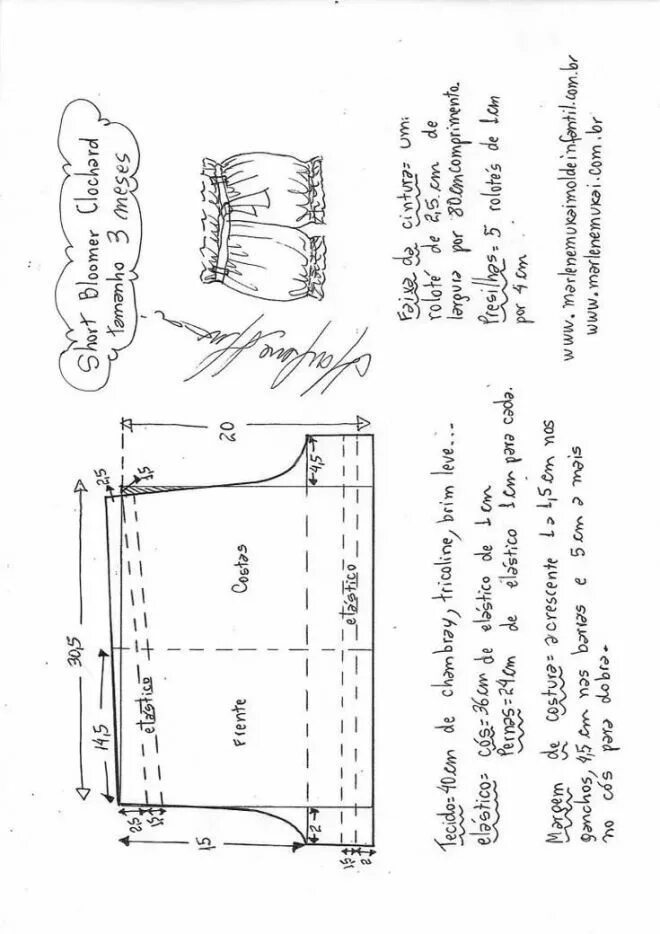 Short Bloomer Clochard
tamanho 3 meses
30,5
14,5
2,5
1,5
20
elástico
Frente
Costas
4,5
2,5
1,5
15
2
elástico
1,5
2
Faixa da cintura= um
roloté de 2,5 cm de
largura por 80 cm comprimento.
Presilhas= 5 rolotés de 1 cm
por 4 cm
www.marlenemukaimoldeinfantil.com.br
www.marlenemukai.com.br
Tecido= 40 cm de chambray, tricoline, brim leve...
elástico= cós= 36 cm de elástico de 1 cm
Pernas= 24 cm de elástico 1 cm para cada.
Margem de costura= acrescente 1 a 1,5 cm nos
ganchos, 4,5 cm nas barras e 5 cm a mais
no cós para dobra.